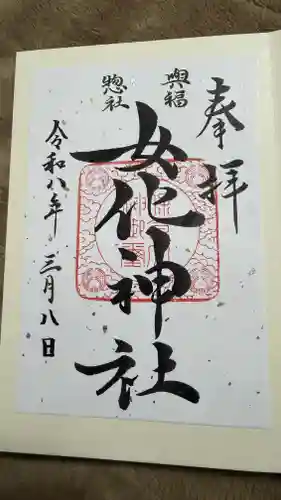 奉拝
興福
惣社
女化神社
令和八年 三月八日